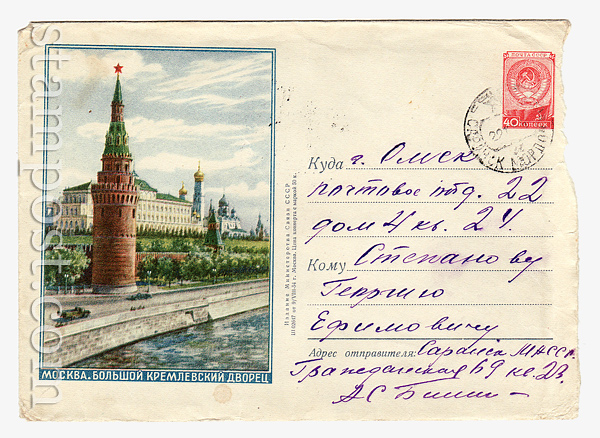 ПОЧТА СССР
40 КОПЕЕК
САРАНСК МОРДОВ
Куда г. Омск
почтовое отд. 22
дом 4 кв. 24.
Кому Степанову
Георгию
Ефимовичу
Адрес отправителя: Саранск МАССР.
Гражданская 69 кв. 23.
Издание Министерства Связи СССР
МОСКВА. БОЛЬШОЙ КРЕМЛЕВСКИЙ ДВОРЕЦ
www.stamppost.com